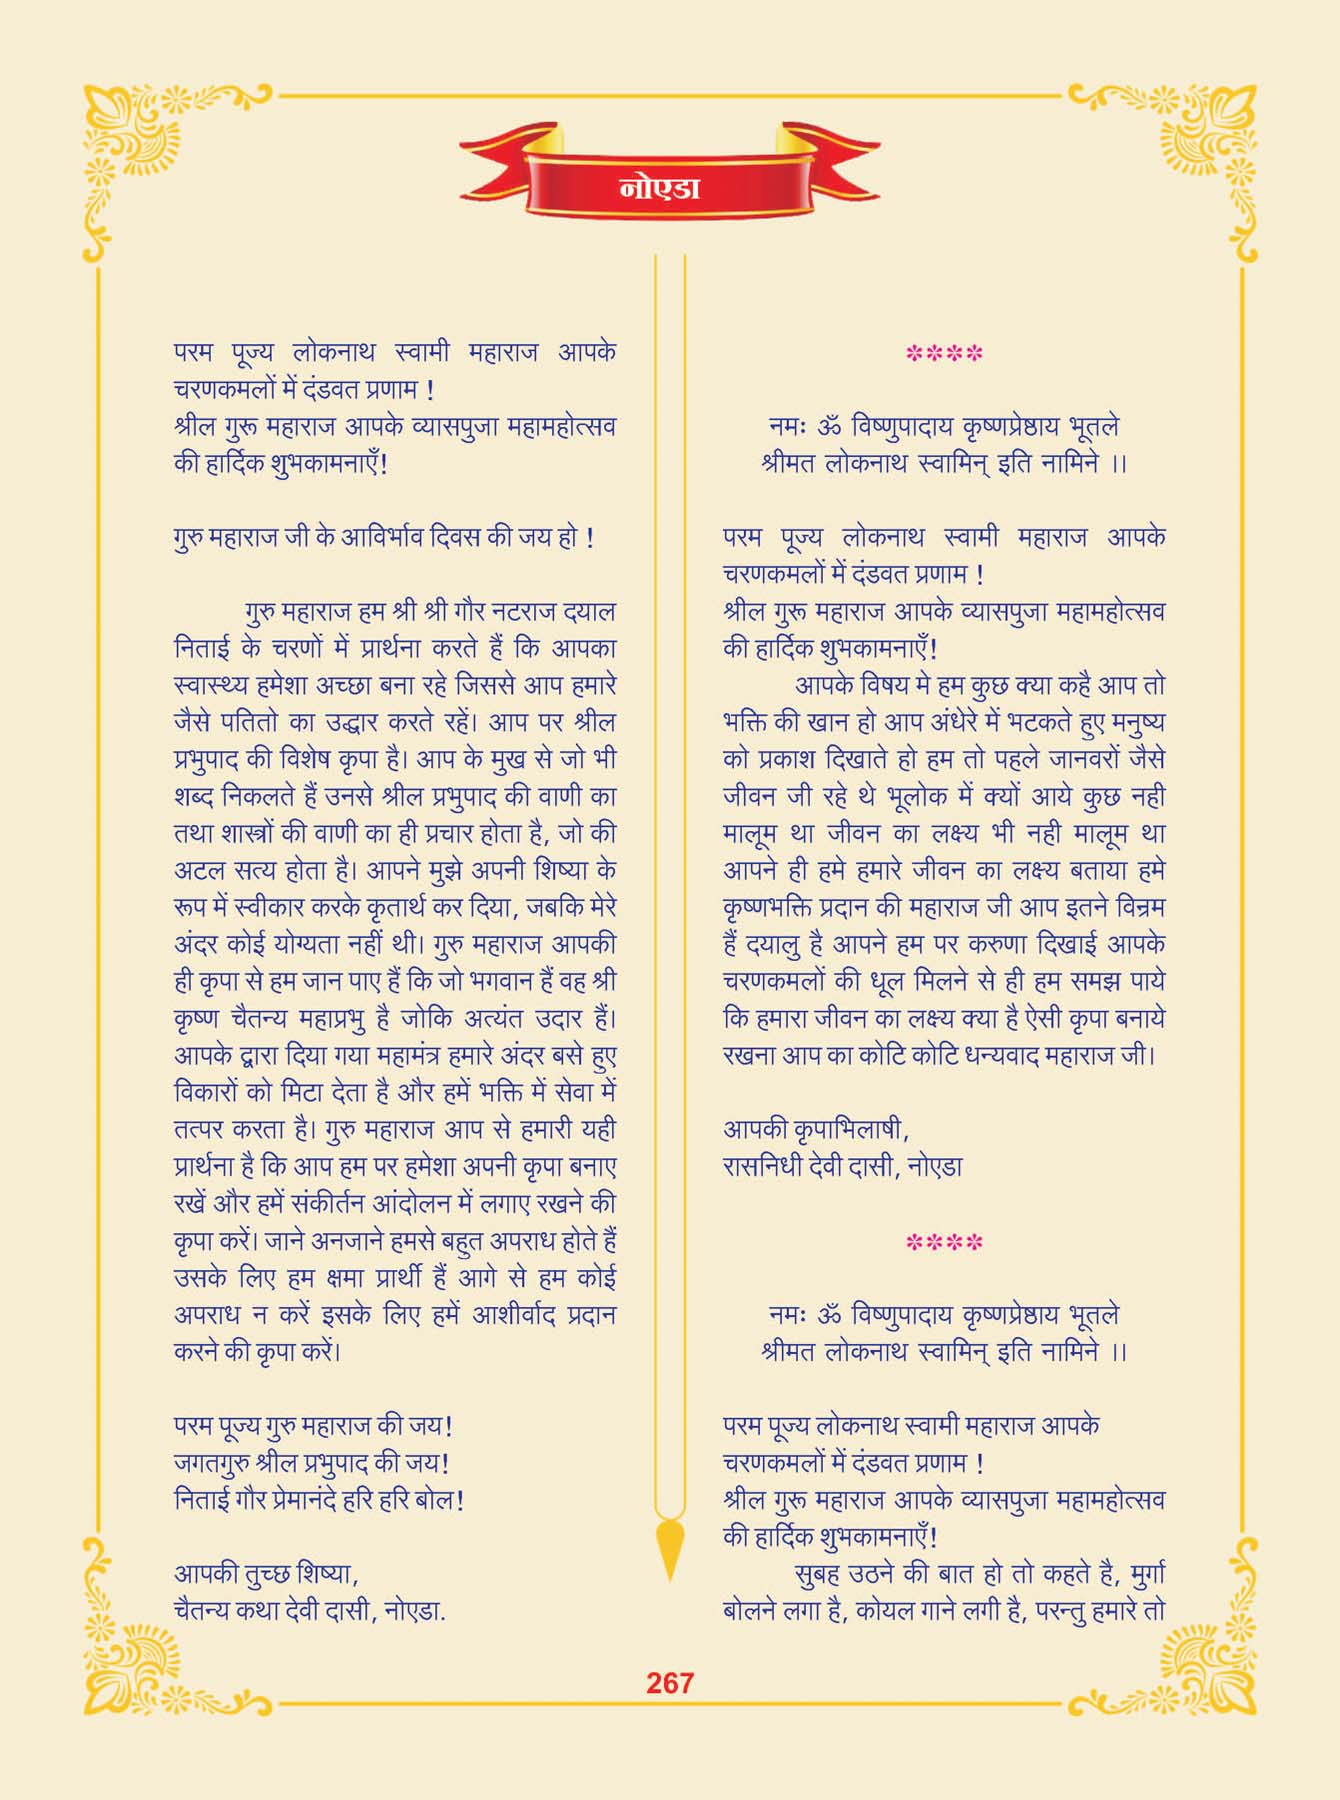 नोएडा
परम पूज्य लोकनाथ स्वामी महाराज आपके
चरणकमलों में दंडवत प्रणाम !
श्रील गुरू महाराज आपके व्यासपुजा महामहोत्सव
की हार्दिक शुभकामनाएँ!
गुरु महाराज जी के आविर्भाव दिवस की जय हो !
गुरु महाराज हम श्री श्री गौर नटराज दयाल
निताई के चरणों में प्रार्थना करते हैं कि आपका
स्वास्थ्य हमेशा अच्छा बना रहे जिससे आप हमारे
जैसे पतितो का उद्धार करते रहें। आप पर श्रील
प्रभुपाद की विशेष कृपा है। आप के मुख से जो भी
शब्द निकलते हैं उनसे श्रील प्रभुपाद की वाणी का
तथा शास्त्रों की वाणी का ही प्रचार होता है, जो की
अटल सत्य होता है। आपने मुझे अपनी शिष्या के
रूप में स्वीकार करके कृतार्थ कर दिया, जबकि मेरे
अंदर कोई योग्यता नहीं थी। गुरु महाराज आपकी
ही कृपा से हम जान पाए हैं कि जो भगवान हैं वह श्री
कृष्ण चैतन्य महाप्रभु है जोकि अत्यंत उदार हैं।
आपके द्वारा दिया गया महामंत्र हमारे अंदर बसे हुए
विकारों को मिटा देता है और हमें भक्ति में सेवा में
तत्पर करता है। गुरु महाराज आप से हमारी यही
प्रार्थना है कि आप हम पर हमेशा अपनी कृपा बनाए
रखें और हमें संकीर्तन आंदोलन में लगाए रखने की
कृपा करें। जाने अनजाने हमसे बहुत अपराध होते हैं
उसके लिए हम क्षमा प्रार्थी हैं आगे से हम कोई
अपराध न करें इसके लिए हमें आशीर्वाद प्रदान
करने की कृपा करें।
परम पूज्य गुरु महाराज की जय!
जगतगुरु श्रील प्रभुपाद की जय!
निताई गौर प्रेमानंदे हरि हरि बोल!
आपकी तुच्छ शिष्या,
चैतन्य कथा देवी दासी, नोएडा.
****
नमः ॐ विष्णुपादाय कृष्णप्रेष्ठाय भूतले
श्रीमत लोकनाथ स्वामिन् इति नामिने ।।
परम पूज्य लोकनाथ स्वामी महाराज आपके
चरणकमलों में दंडवत प्रणाम !
श्रील गुरू महाराज आपके व्यासपुजा महामहोत्सव
की हार्दिक शुभकामनाएँ!
आपके विषय मे हम कुछ क्या कहै आप तो
भक्ति की खान हो आप अंधेरे में भटकते हुए मनुष्य
को प्रकाश दिखाते हो हम तो पहले जानवरों जैसे
जीवन जी रहे थे भूलोक में क्यों आये कुछ नही
मालूम था जीवन का लक्ष्य भी नही मालूम था
आपने ही हमे हमारे जीवन का लक्ष्य बताया हमे
कृष्णभक्ति प्रदान की महाराज जी आप इतने विन्रम
हैं दयालु है आपने हम पर करुणा दिखाई आपके
चरणकमलों की धूल मिलने से ही हम समझ पाये
कि हमारा जीवन का लक्ष्य क्या है ऐसी कृपा बनाये
रखना आप का कोटि कोटि धन्यवाद महाराज जी।
आपकी कृपाभिलाषी,
रासनिधी देवी दासी, नोएडा
****
नमः ॐ विष्णुपादाय कृष्णप्रेष्ठाय भूतले
श्रीमत लोकनाथ स्वामिन् इति नामिने ।।
परम पूज्य लोकनाथ स्वामी महाराज आपके
चरणकमलों में दंडवत प्रणाम !
श्रील गुरू महाराज आपके व्यासपुजा महामहोत्सव
की हार्दिक शुभकामनाएँ!
सुबह उठने की बात हो तो कहते है, मुर्गा
बोलने लगा है, कोयल गाने लगी है, परन्तु हमारे तो
267